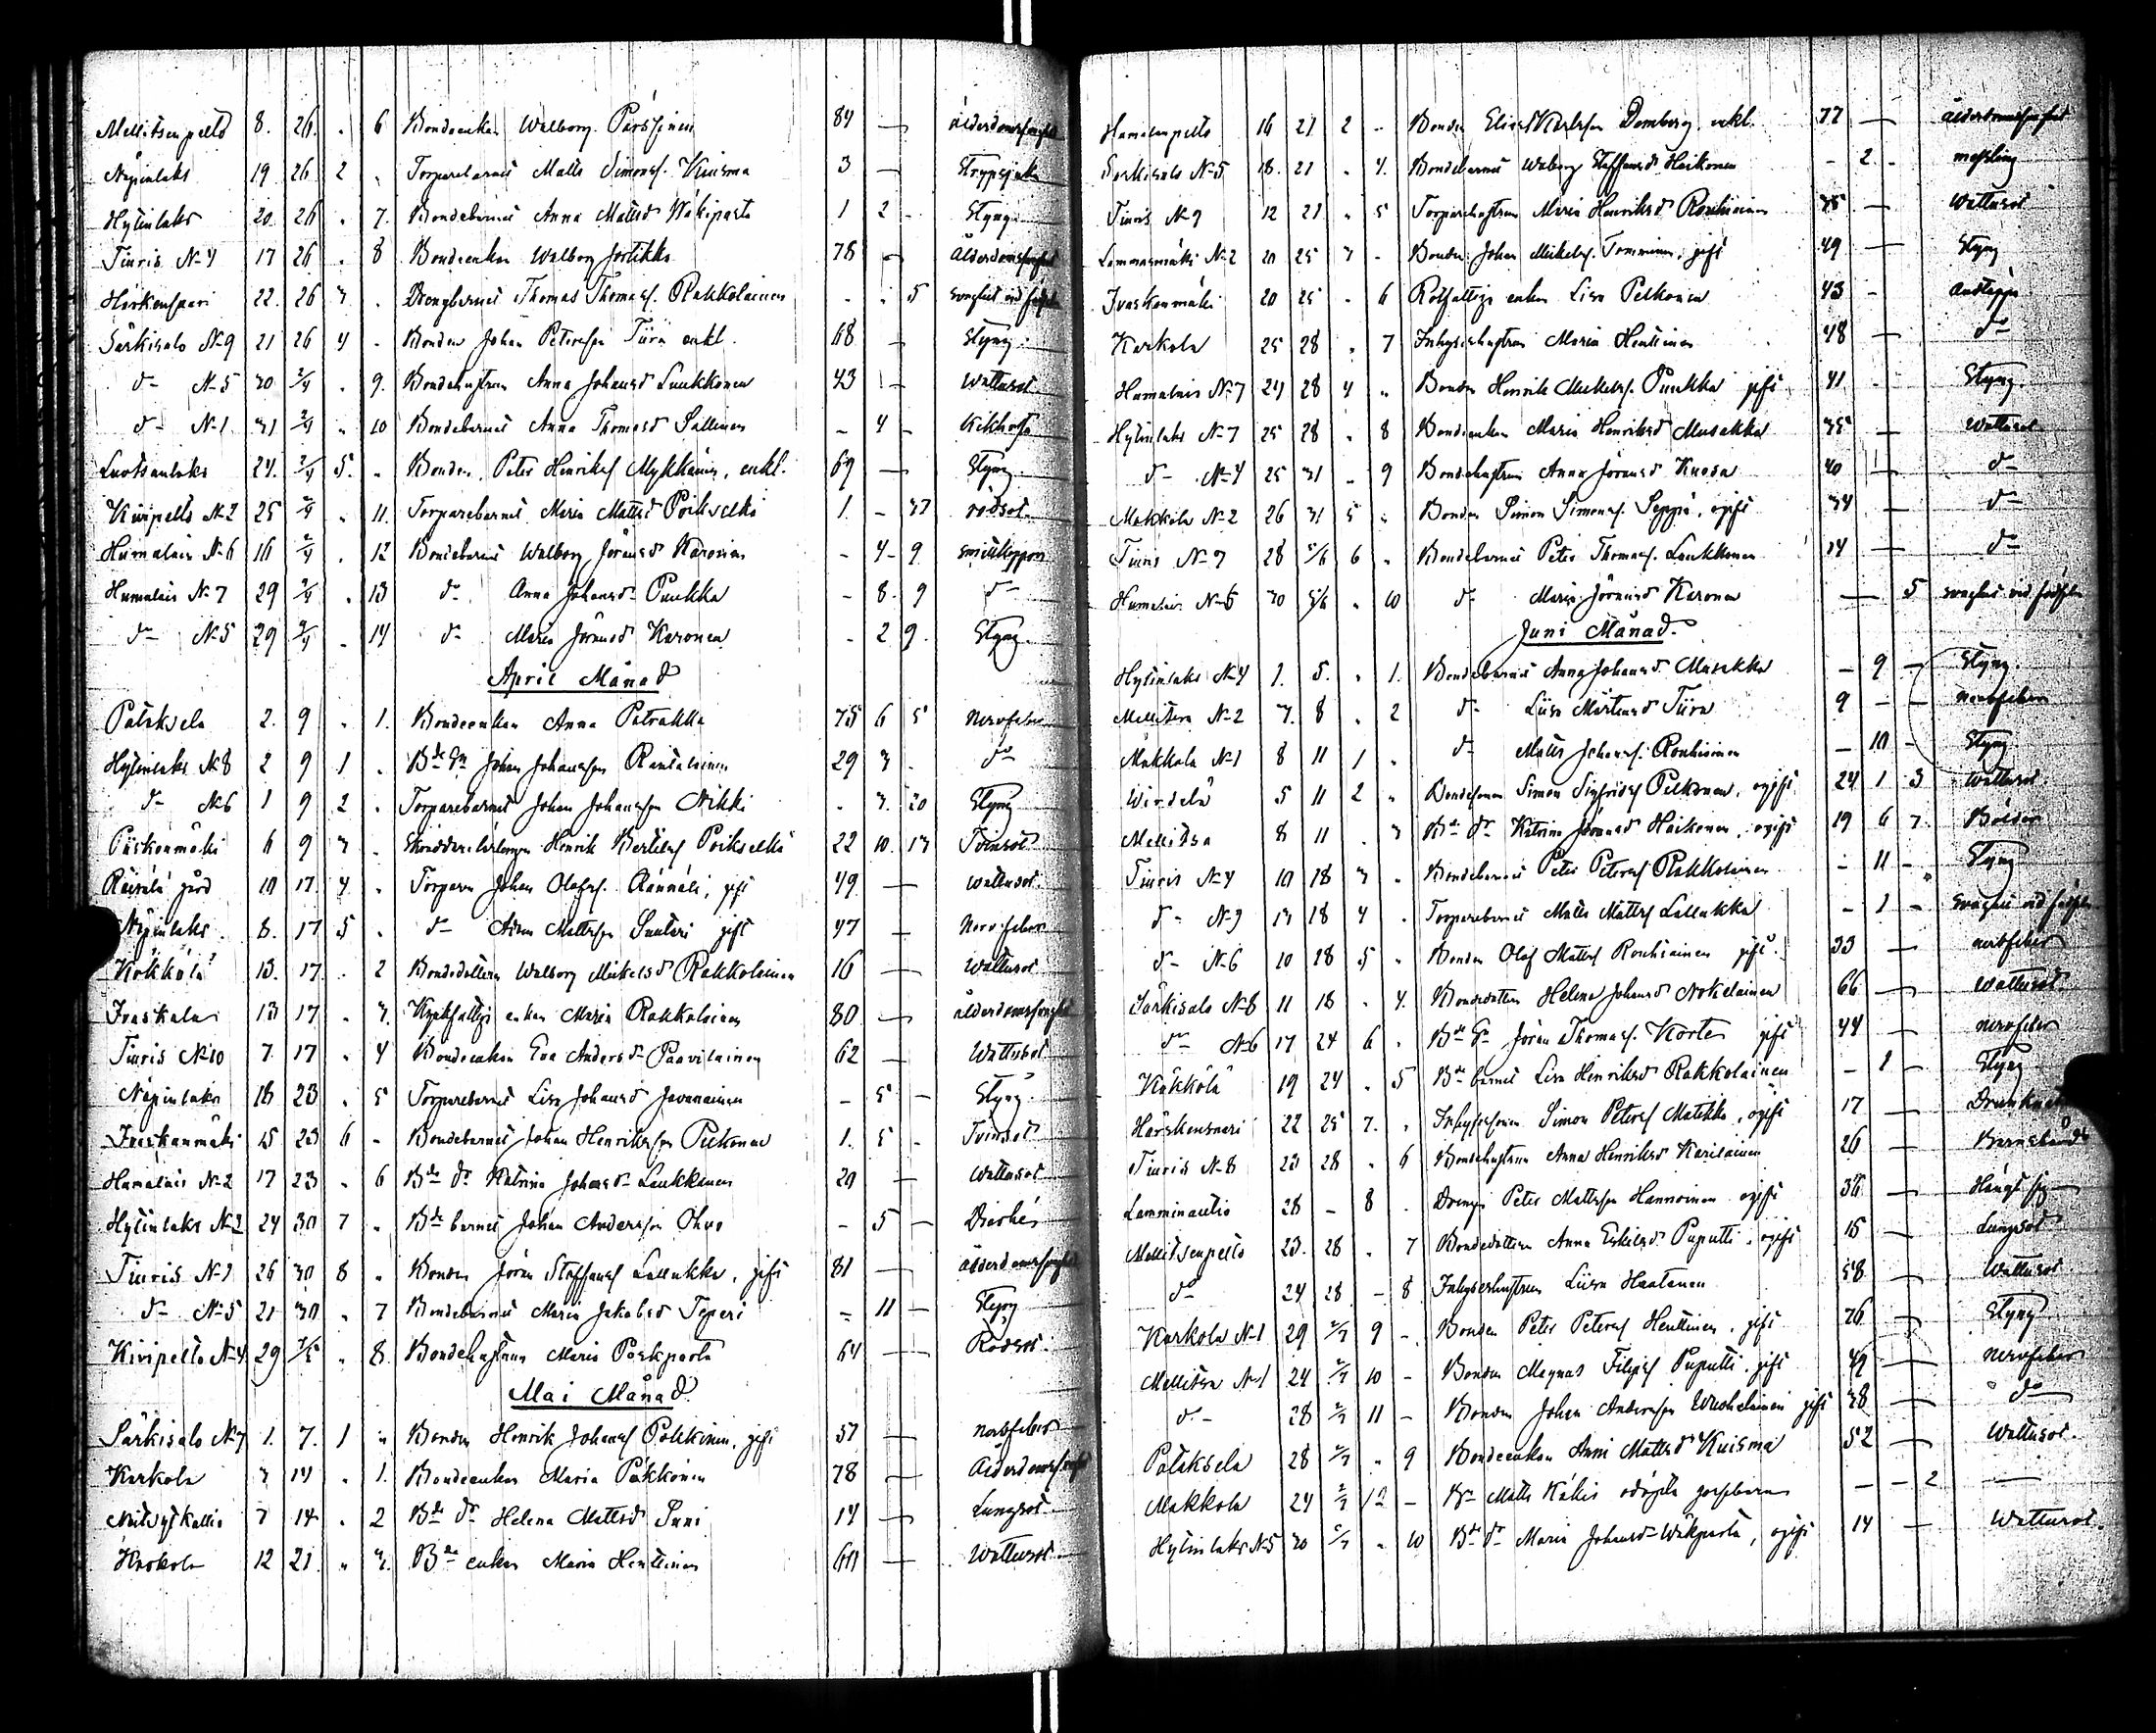 Mellitsenpelto 8. 26. . 6 Bondeenkan Walborg Pärssinen 84 — Ålderdomsswaghet
Näpinlaks 19. 26 2 . Torparebarnet Matts Simonss. Kuisma 3 — Strypsjuka
Hytinlaks 20. 26 . 7. Bondebarnet Anna Mattsd Wäkiparta 1 2 - Styng
Tiuris N 4 17 26 . 8 Bondeenkan Walborg Jortikka 78 — Ålderdomsswaghet
22. 26 3 . Drengbarnet Thomas Thomass. Rakkolainen - . 5 swaghet vid födseln
Särkisalo N 9 21 26 4 - Bonden Johan Petersson Tiira enkl. 68 — Styng
d- N 5 30 2/4 . 9. Bondehustrun Anna Johansd Laukkanen 43 — Wattusot
d- N 1 31 2/4 . 10 Bondebarnet Anna Thomasd Sallinen - 4 - Kikhosta
24. 2/4 5. . Bonden Peter Henrikss Mykkänen, enkl. 69 — Styng
Kiwipelto N 2 25 2/4 . 11. Torparebarnet Maria Mattsd Poikselkä 1 - 37 rödsot
Humalais N 6 16 2/4 . 12 Bondebarnet Walborg Jöransd Karonen - 4 - 9 smittkoppor
Humalais N 7 29 2/4 . 13 d- Anna Johansd Puukka - 8. 9 d-
d- N 5 29 2/4 . 14 d- Maria Jöransd Karonen - 2 9. Styng.
April Månad
Pataksela 2. 9 . 1. Bondeenkan Anna Patrakka 75 6 5 Nervfeber
Hytinlaks N 8 2 9 1 . Bde Sn Johan Johansson Rantalainen 29 3 . d-
d- N 6 1 9 2 . Torparebarnet Johan Johansson Nikki . 3. 20 Styng
6 9 3 . Skräddarelärlingen Henrik Bertilss Poikselkä 22 10. 13 Tvinsot
Räisälä gård 10 17. 4. . Torparen Johan Olofss. Rännäli, gift 49. — wattusot.
Näpinlaks. 8. 17 5 . d- Adam Mattsson Suutari gift 47 — Nervfeber
Kökkölä 13. 17. . 2 Bondedottern Walborg Mickelsd Rakkolainen 16 — Wattusot
Ivaskala 13 17 . 3. enkan Maria Rakkolainen 80 — ålderdomsswaghet
Tiuris N 10 7. 17 . 4 Bondeenkan Eva Andersd- Paavilainen 62 — Wattusot
Näpinlaks 18 23 . 5 Torparebarnet Lisa Johansd Javanainen - 5 - Styng.
Ivaskanmäki 15 23 6 - Bondebarnet Johan Henriksson Pelkonen 1. 5 - Tvinsot
Humalais N 2 17 23 . 6 Bde dr Katrina Johansd- Laukkanen 20 — wattusot
Hytinlaks N 2 24 30 7 . Bde barnet Johan Andersson Ohvo - 5 - Diarhé
Tiuris N 1 26 30 8 . Bonden Jöran Staffanss Lallukka, gift 81 — ålderdomsswaghet
d- N 5 21 30 . 7 Bondebarnet Maria Jakobsd Teperi - 11 - Styng
Kivipelto N 4 29 7/5 . 8. Bondehustrun Maria Poskparta 64 — Rödsot.
Mai Månad
Särkisalo N 7 1. 7. 1 . Bonden Henrik Johanss Pökkinen, gift 57 — nervfeber
Karkola 3 14 . 1. Bondeenkan Maria Päkkönen 78 — Ålderdomsswaghet
7 14. . 2 Bde dr Helena Mattsd Suni 14 — Lungsot.
12 21. . 3. Bde enkan Maria Henttinen 60 — Wattusot.
16 21 2 - Bonden Domberg enkl. 77 — ålderdomsswaghet
Särkisalo N 5 18. 21 . 4. Bondebarnet Walborg Staffansd Haikonen - 2. messling
Tiuris N 9 12 21 . 5 Torparehustrun Maria Henriksd Rouhiainen 35 — Wattusot
Lammasmäki N 2 20 25 3 - Bonden Johan Mickelss. Tomminen, gift 49 — Styng
Ivaskanmäki 20 25 . 6 Rotfattige enkan Lisa Pelkonen 43 - andtäppa
Karkola 25 28 . 7 Inhyseshustrun Maria Henttinen 48 — d-
Humalais N 7 24 28 4 . Bonden Henrik Mickelss. Puukka gift 41 . Styng.
Hytinlaks N 7 25 28 . 8 Bondeenkan Maria Henriksd Musakka 35 — wattusot
d- N 4 25 31 - 9 Bondehustrun Anna Jöransd Kuosa 40 — d-
Makkola N 2 26 31 5 . Bonden Simon Simonss. Seppä, ogift 34 — d-
Tiuris N 7 28 5/6 6 . Bondebarnet Peter Thomass. Laukkanen 14 — d-
Humalais N 5 30 5/6 . 10 d- Maria Jöransd Karonen — 5 swaghet vid födseln
Juni Månad.
Hytinlaks N 4 1. 5. . 1. Bondebarnet Anna Johansd Musakka - 9 - Styng.
Mellitsa N 2 7. 8 . 2 d- Lisa Mårtensd Tiira 9 - - nervfeber
Makkola N 1 8 11 1 . d- Matts Johanss. Rouhiainen - 10 - Styng
5 11 2 . Bondesonen Simon Sigfridss Pelkonen, ogift 24 1 3 wattusot.
Mellitsa 8 11 . 3 Bde dr Katrina Jöransd Haikonen, ogift 19 6 7. Bölder
Tiuris N 4 10 18 3 . Bondebarnet Peter Peterss Rakkolainen - 11 - Styng
d- N 9 13 18 4 . Torparebarnet Matts Mattss Lallukka - 1 - Swaghet vid födseln
d- N 6 10 18 5 . Bonden Olof Mattss Rouhiainen gift. 33 — nervfeber
Särkisalo N 8 11 18 . 4. Bondedottern Helena Johansd Nokelainen 66 — wattusot.
d- N 6 17 24 6 . Bde Sn Jöran Thomass. Korte gift 44 — nervfeber
Käkkölä 19 24 . 5 Bde barnet Lisa Henriksd Rakkolainen - 1 Styng
22 25 7. . Inhysessonen Simon Peterss Matikka, ogift 17 — Drunknat
Tiuris N 8 23 28 . 6 Bondehustrun Anna Henriksd Karilainen 26 — Barnsbörd
Lamminautio 28 - 8 . Drengen Peter Mattsson Hannoinen ogift 36 — Hängt sig
Mellitsenpelto 23. 28 . 7 Bondedottern Anna Eskilsd Puputti, ogift 15 — Lungsot
d- 24 28 - 8 Inhyseshustrun Lisa Haatanen 58 — Wattusot.
Karkola N 1 29 2/7 9 - Bonden Peter Peterss Henttinen, gift 76 — Styng
Mellitsa N 1 24 2/7 10 - Bonden Magnus Filipss Puputti, gift 49 — Nervfeber
d- 28 2/7 11 - Bonden Johan Andersson gift 38 — d-
Pataksela 28 2/7 . 9 Bondeenkan Anni Mattsd Kuisma 52 — Wattusot.
Makkola 24 2/7 12 - Bde Matts Käkis odöpta gossebarn — - 2 —
Hytinlaks N 5 30 2/7 . 10 Bde dr Maria Johansd- Wäkiparta, ogift 14 — Wattusot.